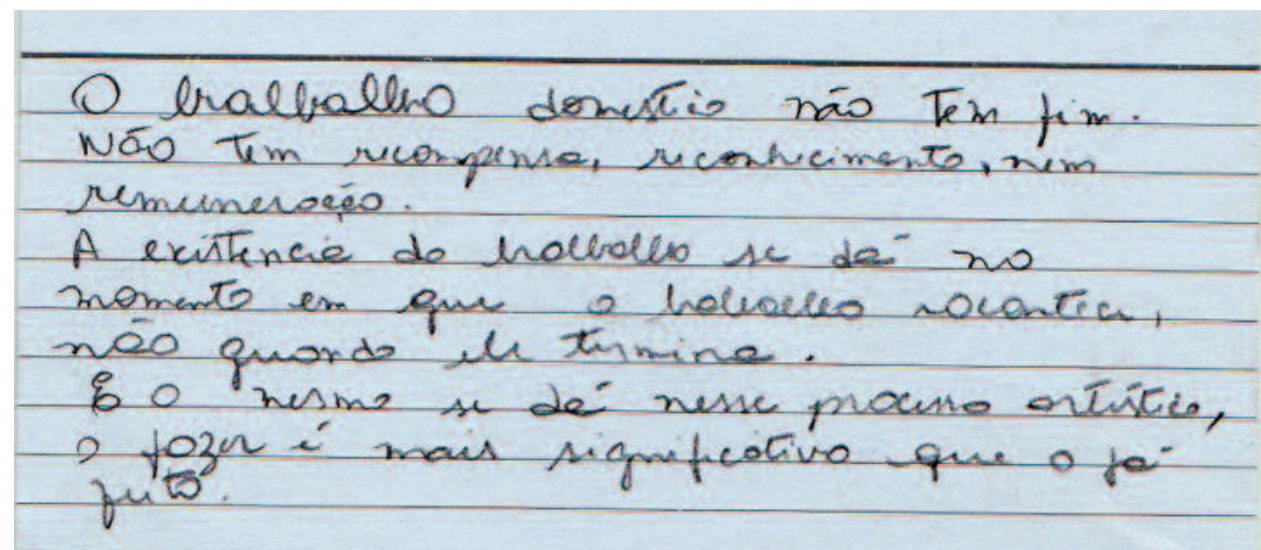 O trabalho domestico não tem fim.
Não tem recompensa, reconhecimento, nem
remuneração.
A existencia do trabalho se dá no
momento em que o trabalho acontece,
não quando ele termina.
E o mesmo se dá nesse processo artístico,
o fazer é mais significativo que o já
feito.